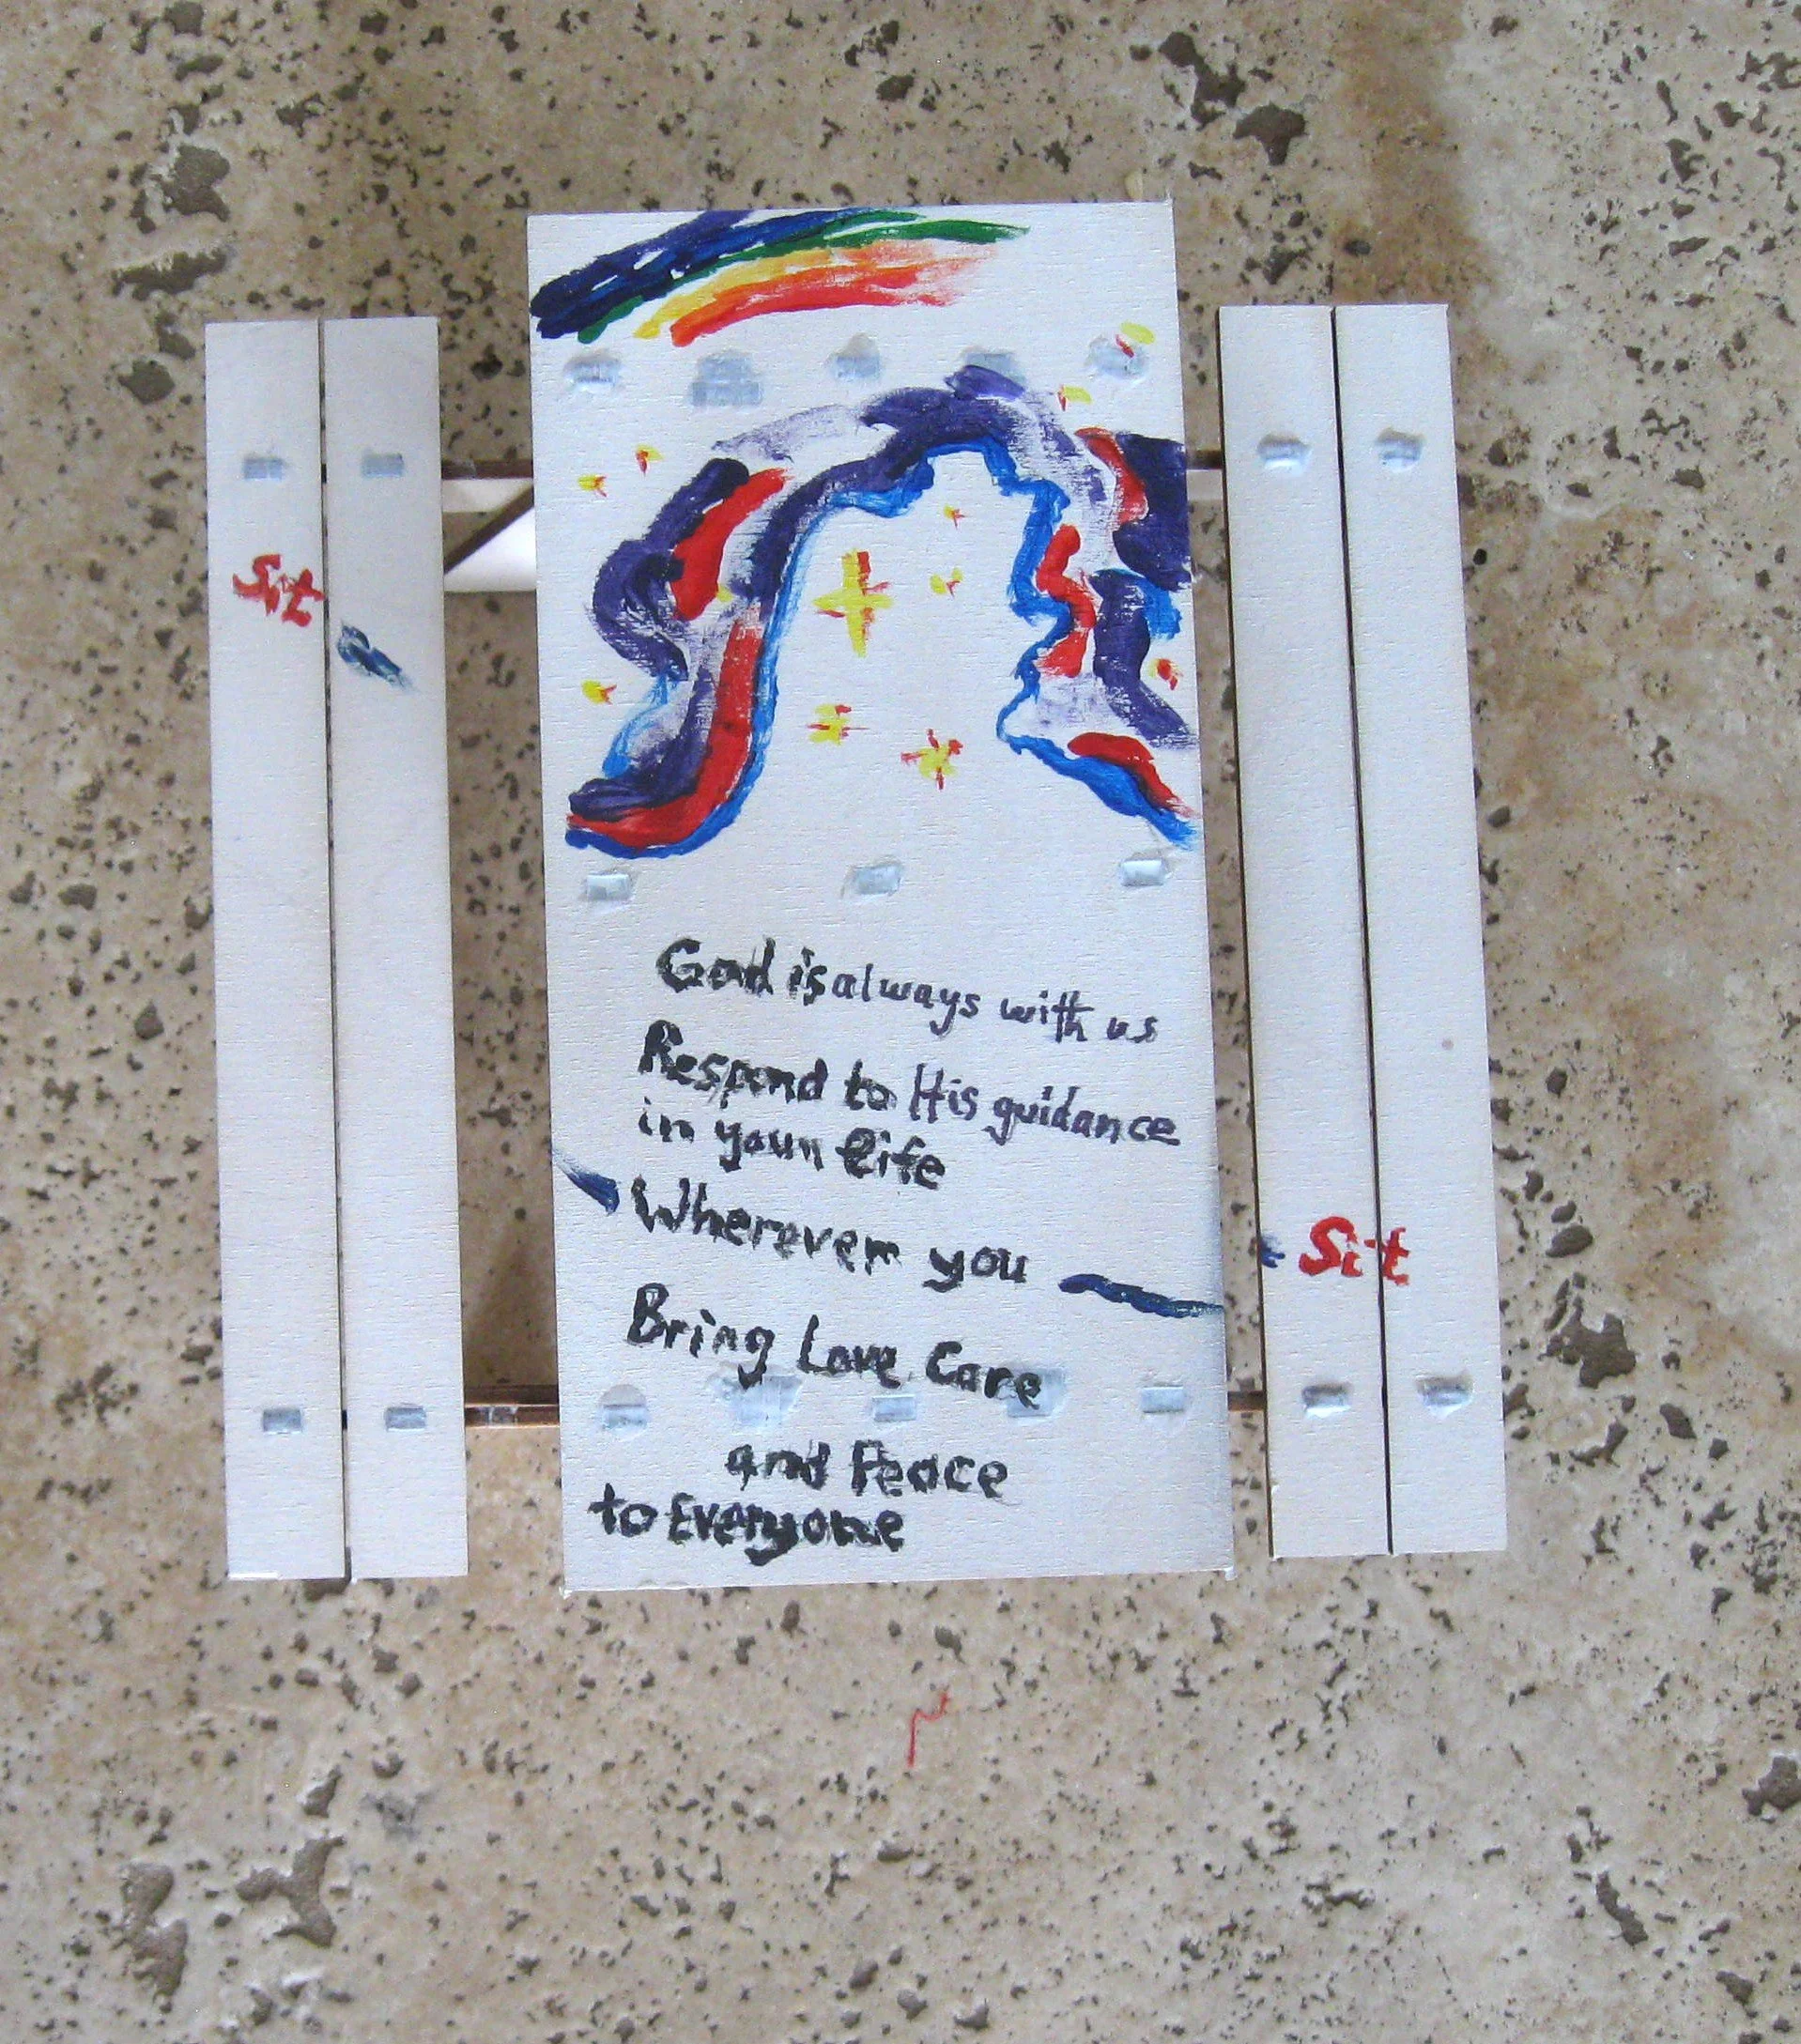 Sit
God is always with us
Respond to His guidance
in your life
Wherever you
Bring Love Care
and Peace
to Everyone
Sit